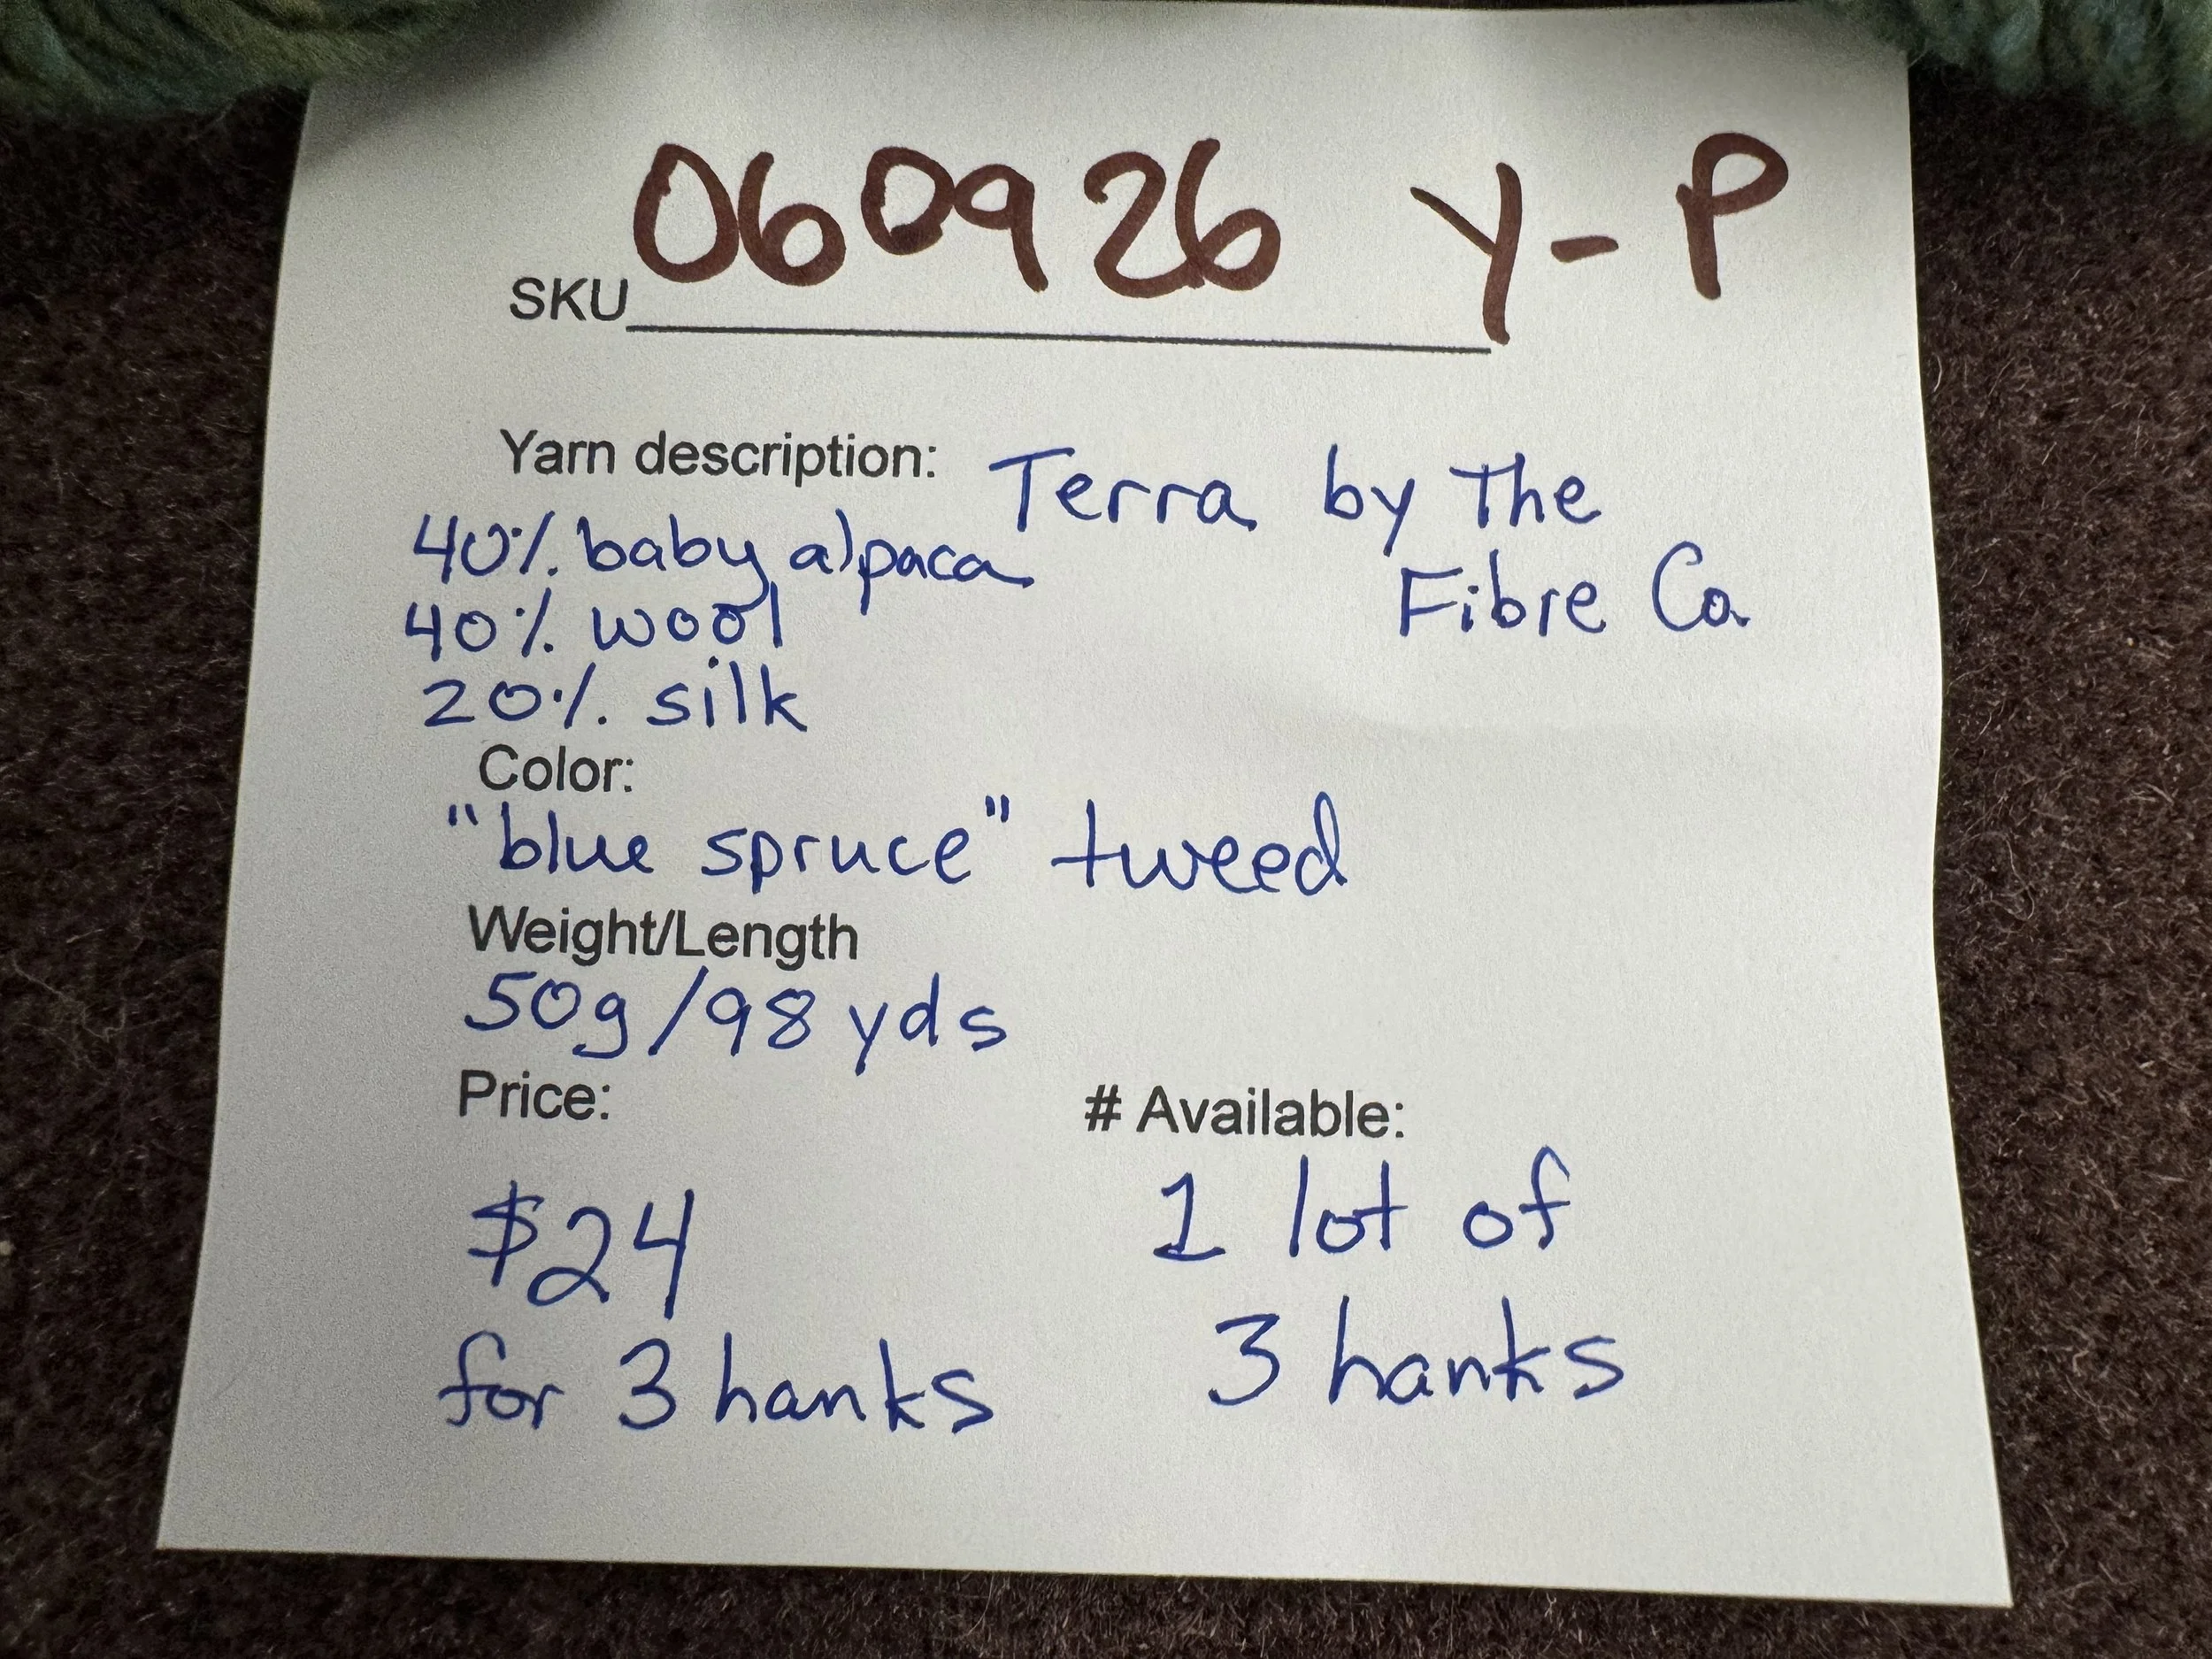 SKU 060926 Y-P
Yarn description: Terra by The
Fibre Co.
40% baby alpaca
40% wool
20% silk
Color:
"blue spruce" tweed
Weight/Length
50g/98 yds
Price:
$24
for 3 hanks
# Available:
1 lot of
3 hanks